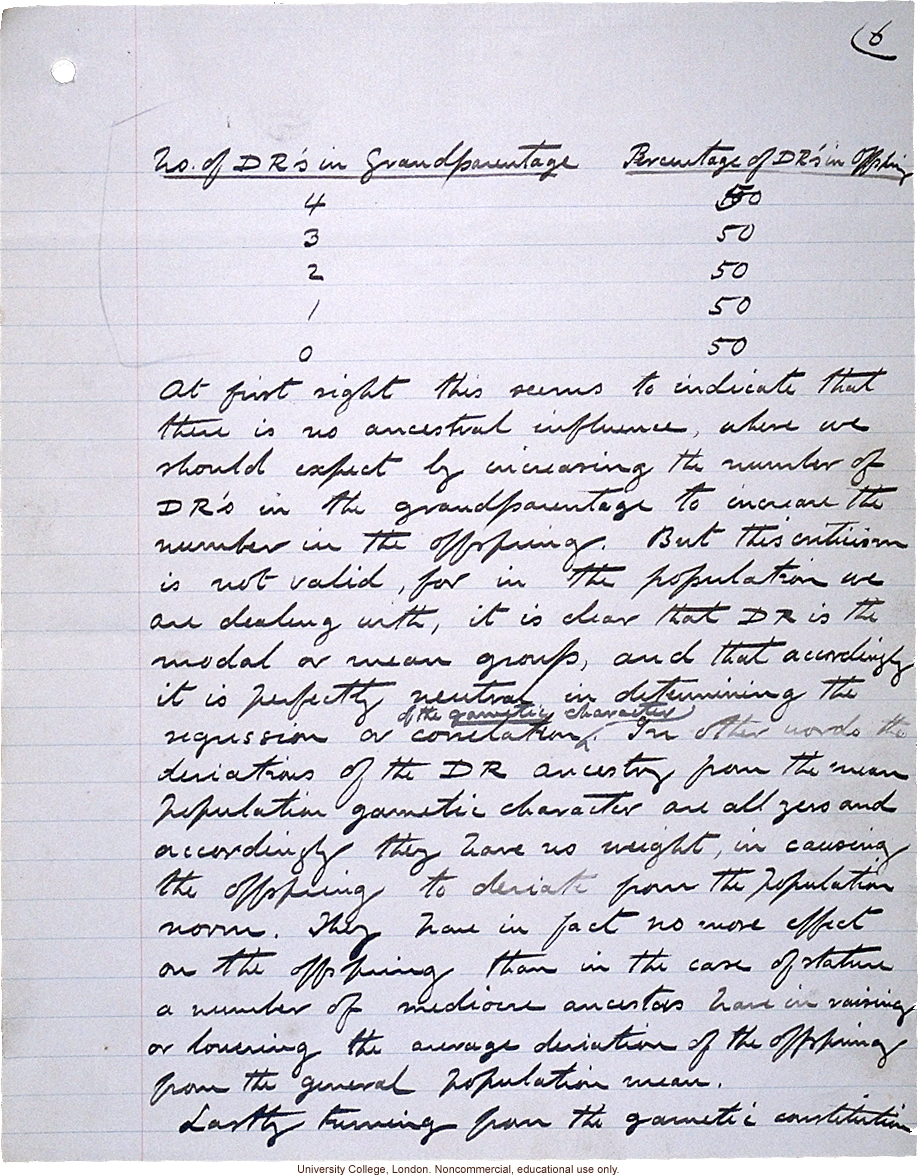 6
No. of DR's in Grandparentage Percentage of DR's in Offspring
4 50
3 50
2 50
1 50
0 50
At first sight this seems to indicate that
there is no ancestral influence, where we
should expect by increasing the number of
DR's in the grandparentage to increase the
number in the offspring. But this criticism
is not valid, for in the population we
are dealing with, it is clear that DR is the
modal or mean group, and that accordingly
it is perfectly neutral in determining the
of the gametic character
regression or correlation. In other words the
deviations of the DR ancestry from the mean
population gametic character are all zero and
accordingly they have no weight, in causing
the offspring to deviate from the population
norm. They have in fact no more effect
on the offspring than in the case of stature
a number of mediocre ancestors have in raising
or lowering the average deviation of the offspring
from the general population mean.
Lastly turning from the gametic constitution
University College, London. Noncommercial, educational use only.